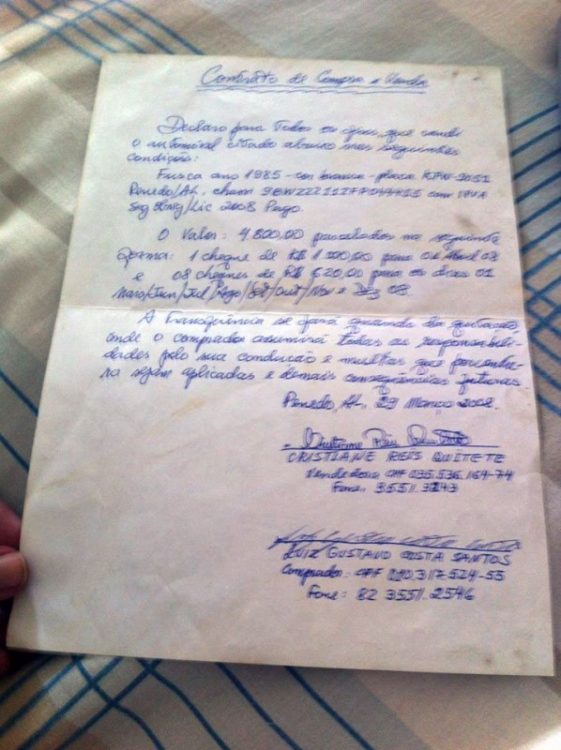 Contrato de Compra e Venda
Declaro para todos os fins que vendi
o automóvel citado abaixo nas seguintes
condições:
Fusca ano 1985 - cor branca - placa
Penedo/AL. chassi com IPVA
Seg /Lic 2008 Pago.
O Valor: 4.800,00 parcelados na seguinte
forma: 1 cheque de R$ para 01 Abril 08
e 08 cheques de R$ 620,00 para os dias 01
Maio/Jun/Jul/Ago/Set/Out/Nov e Dez 08.
A transferência se fará quando da quitação,
onde o comprador assumirá todas as responsabili-
dades pelo sua condução e multas que porventu-
ra sejam aplicadas e demais consequências futuras.
Penedo, AL, 29 Março 2008.
CRISTIANE REIS QUITETE
Vendedora CPF 035.536.164-74
Fone: 3551.3243
LUIZ GUSTAVO COSTA SANTOS
Comprador: CPF 010.317.524-55
Fone: 82 3551.2546